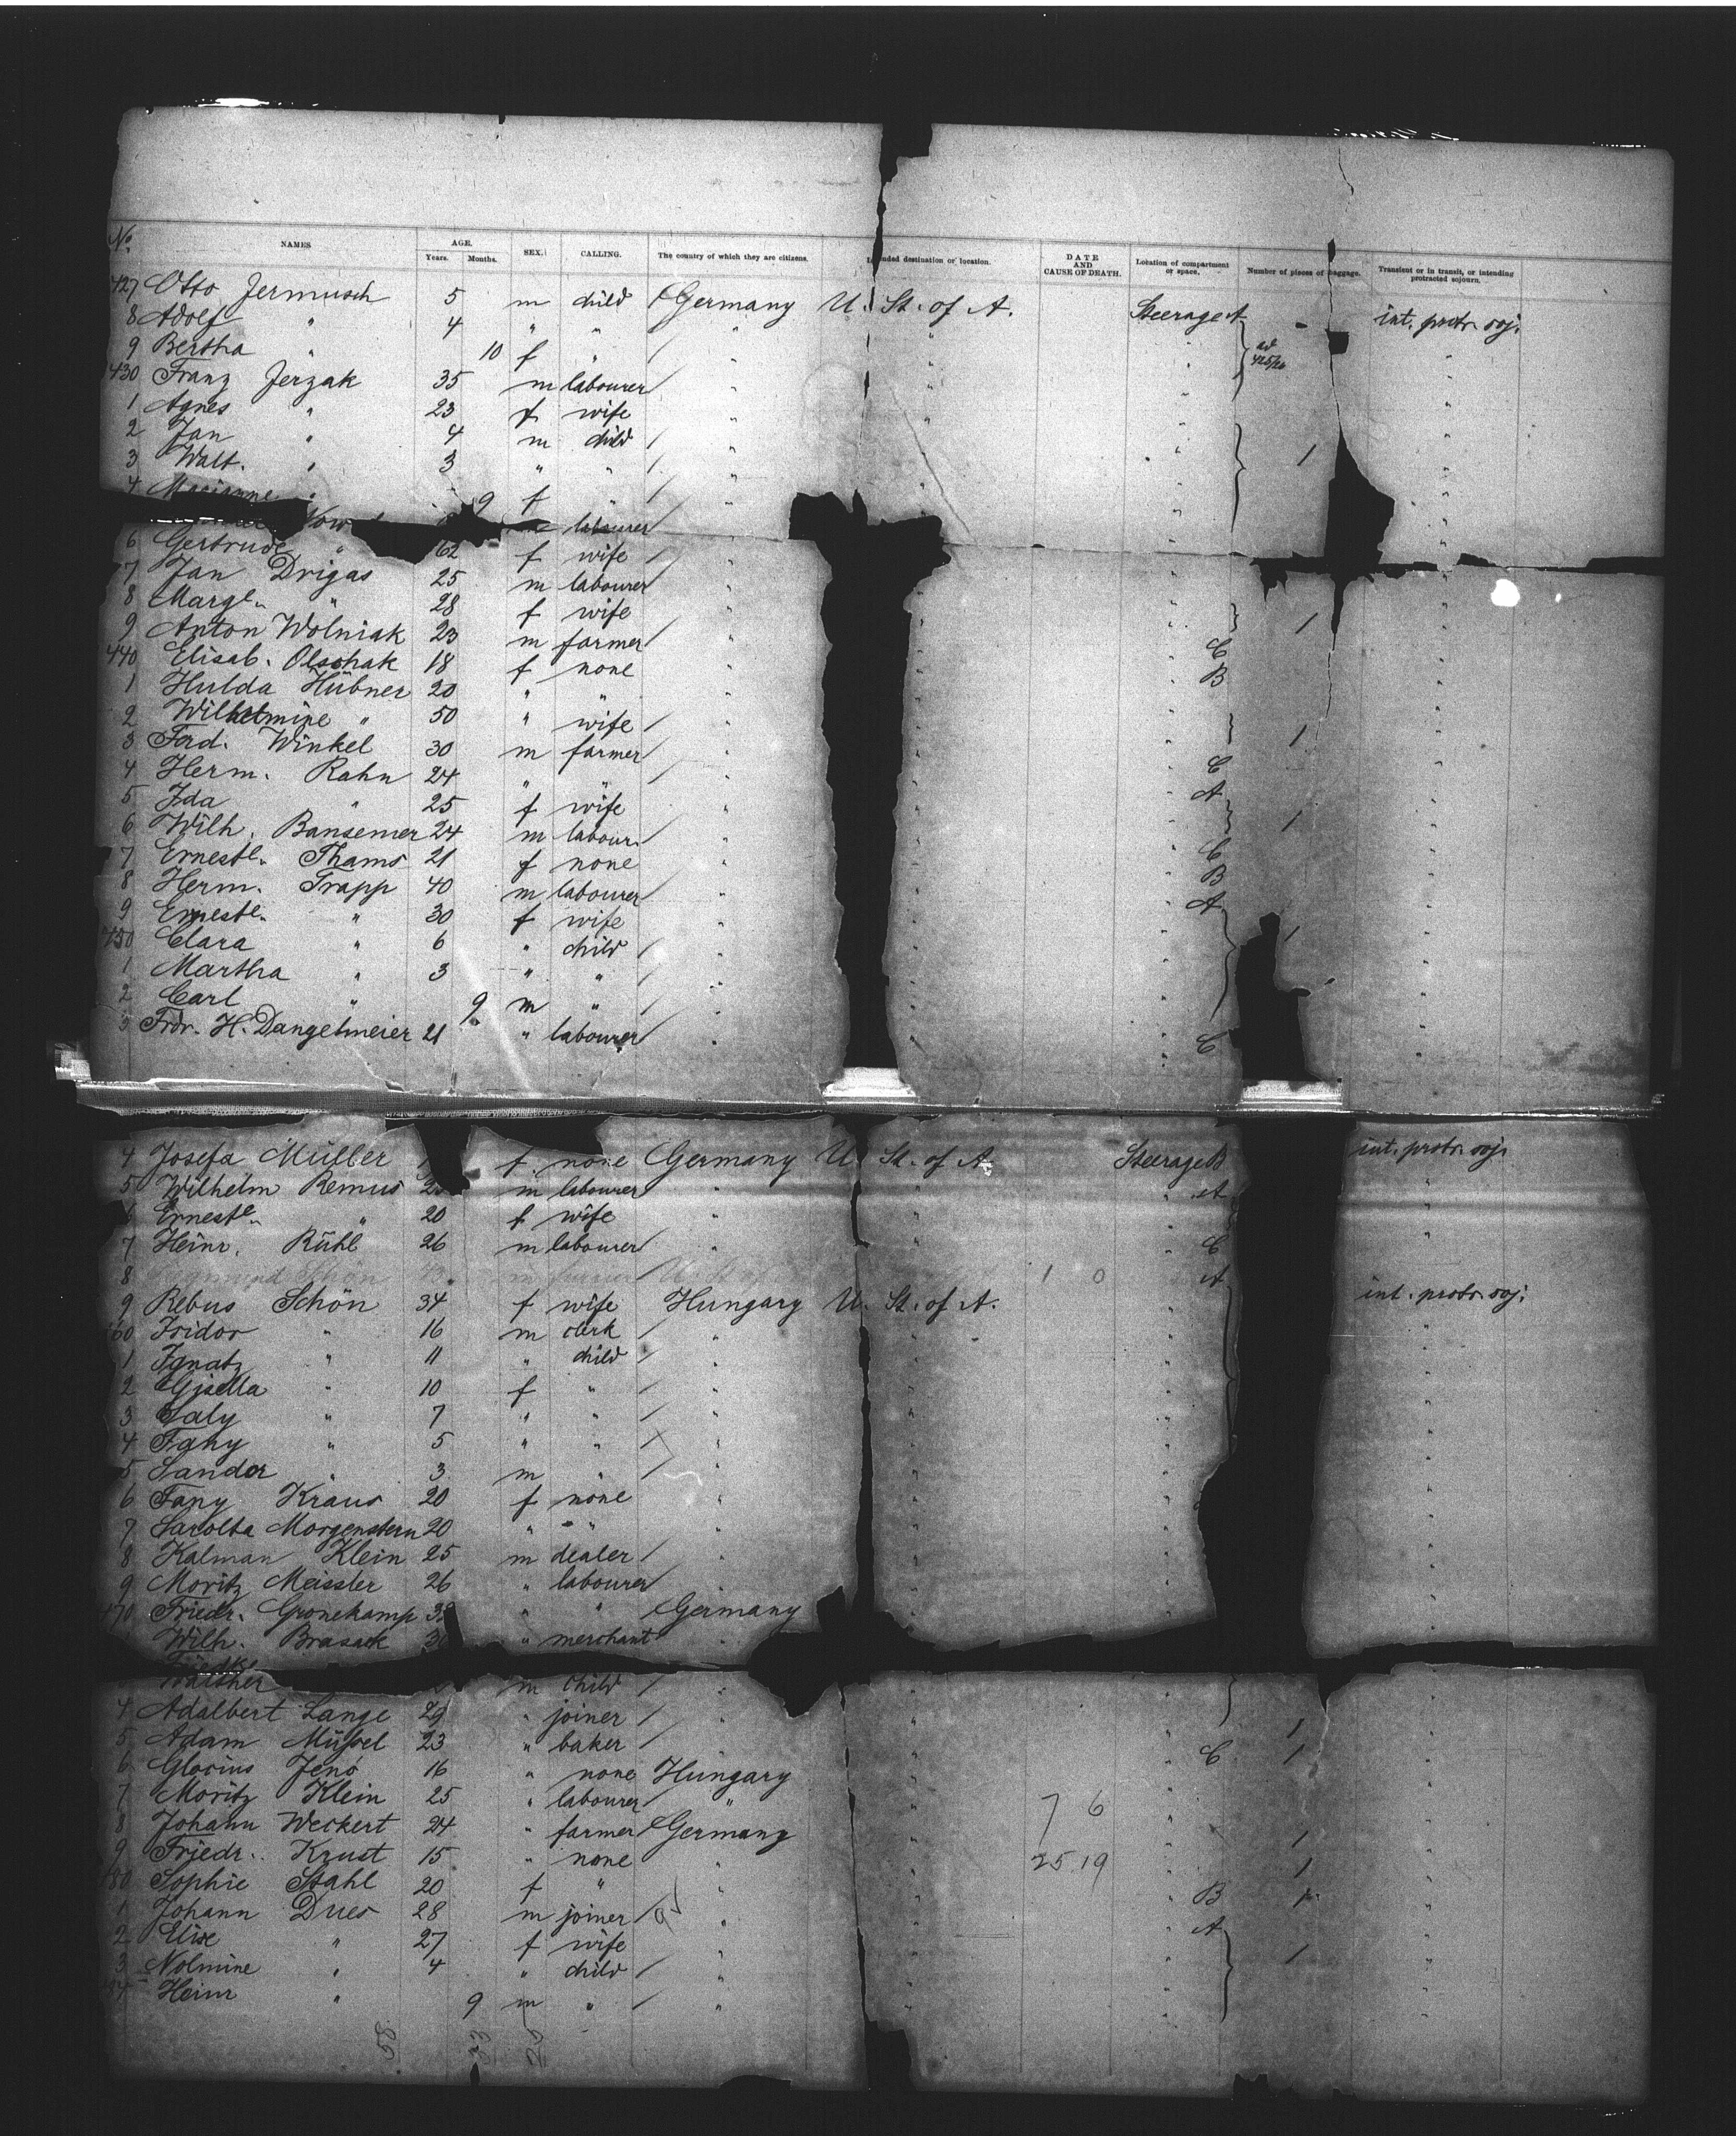 No. NAMES AGE. Years. Months. SEX. CALLING. The country of which they are citizens. Intended destination or location. DATE AND CAUSE OF DEATH. Location of compartment or space. Number of pieces of baggage. Transient or in transit, or intending protracted sojourn.
427 Otto Jermusch 5 m child Germany U. St. of A. Steerage A int. protr. soj.
8 Adolf " 4 " " "
9 Bertha " 10 f " / " ad 425/26
430 Franz Jerzak 35 m labourer / "
1 Agnes " 23 f wife
2 Jan " 4 m child / "
3 Walt. " 3 " " / " 1
4 Marianne " 9 f " / "
labourer /
6 Gertrude " 62 f wife / "
7 Jan Drigas 25 m labourer
8 Margt. " 28 f wife "
9 Anton Wolniak 23 m farmer / " C 1
440 Elisab. Olschak 18 f none " B
1 Hulda Hübner 20 " " "
2 Wilhelmine " 50 " wife / "
3 Ferd. Winkel 30 m farmer / " C 1
4 Herm. Rahn 24 " " / " A
5 Ida " 25 f wife "
6 Wilh. Bansemer 24 m labour. / " C 1
7 Ernestl. Thams 21 f none " B
8 Herm. Trapp 40 m labourer " A
9 Ernestl. " 30 f wife "
450 Clara " 6 " child / " 1
1 Martha " 3 " " / "
2 Carl " 9 m " / "
3 Frdr. H. Dangelmeier 21 " labourer / " C
4 Josefa Müller f. none Germany U. St. of A. Steerage B int. protr. soj.
5 Wilhelm Remus m labourer " A
6 Ernestl. " 20 f wife "
7 Heinr. Rühl 26 m labourer / " C
8 Schön m 1 0 A
9 Rebus Schön 34 f wife Hungary U. St. of A. int. protr. soj.
460 Isidor " 16 m clerk / "
1 Ignatz " 11 " child / "
2 Gisella " 10 f " / "
3 Saly " 7 " " / "
4 Fany " 5 " " / "
5 Sandor " 3 m " / "
6 Fany Kraus 20 f none "
7 Sarolta Morgenstern 20 " " "
8 Kalman Klein 25 m dealer / "
9 Moritz Meissler 26 " labourer / "
470 Friedr. Gronekamp " " Germany
Wilh. Brasack " merchant "
Walther m child / "
4 Adalbert Lange 29 " joiner / " 1
5 Adam Müssel 23 " baker / " C 1
6 Glocius Jenö 16 " none Hungary
7 Moritz Klein 25 " labourer " 7 6
8 Johann Weckert 24 " farmer Germany 1
9 Friedr. Krust 15 " none " 25 19 1
480 Sophie Stahl 20 f " " B 1
1 Johann Dues 28 m joiner / " A
2 Elise " 27 f wife " 1
3 Nolmine " 4 " child / "
484 Heinr " 9 m " / "
58 33 25